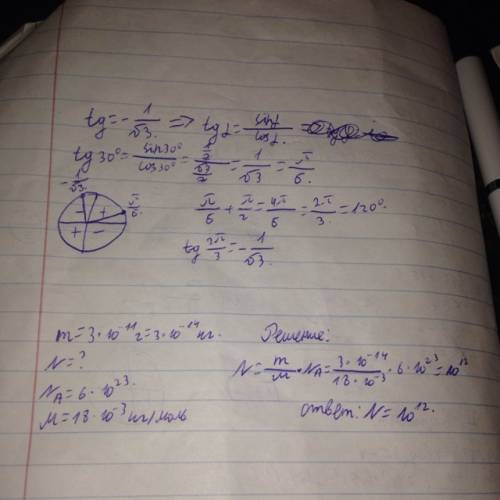 tg = - 1/√3. => tg α = sin α / cos α =
tg 30° = sin 30° / cos 30° = 1/2 / √3/2 = 1/√3 = π/6.
- 1/√3
- + π/6.
+ -
π/6 + π/2 = 4π/6 = 2π/3 = 120°.
tg 2π/3 = - 1/√3.
m = 3·10⁻¹¹ г = 3·10⁻¹⁴ кг.
N = ?
N_A = 6·10²³.
M = 18·10⁻³ кг/моль
Решение:
N = m/M · N_A = 3·10⁻¹⁴ / 18·10⁻³ · 6·10²³ = 10¹²
ответ: N = 10¹².